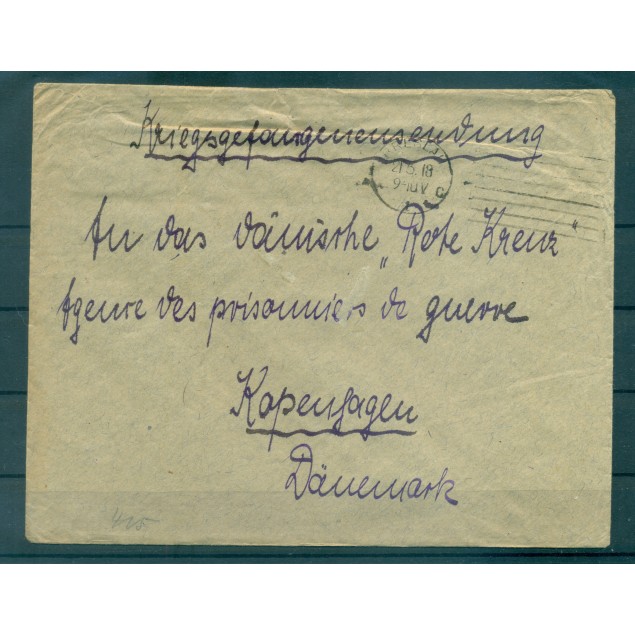 Kriegsgefangenensendung
21.5.18
9-10V C
An das dänische „Rote Kreuz“
Agence des prisonniers de guerre
Kopenhagen
Dänemark